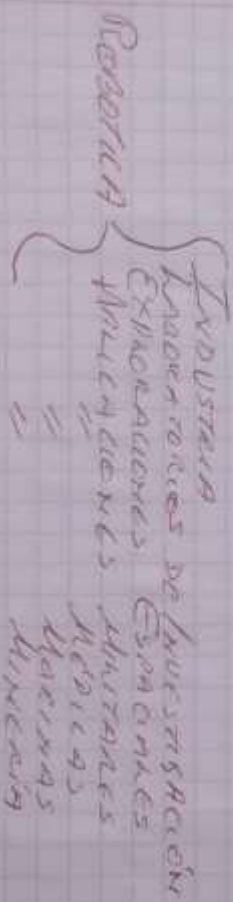 ROBOTICA
INDUSTRIA
LABORATORIOS DE INVESTIGACIÓN
EXPLORACIONES ESPACIALES
APLICACIONES MILITARES
" MÉDICAS
" MARINAS
" MINERIA